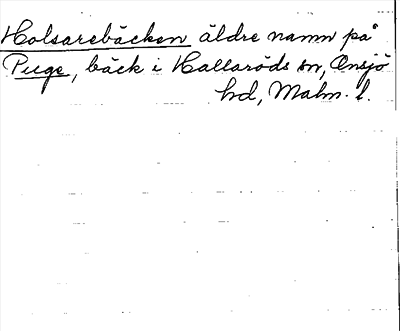 Holsarebäcken äldre namn på
Puge, bäck i Hallaröds sn, Onsjö
hd, Malm. l.